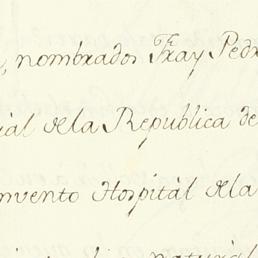 , nombrados Fray Pedr
ial dela Republica de
nvento Hospitàl dela
natural